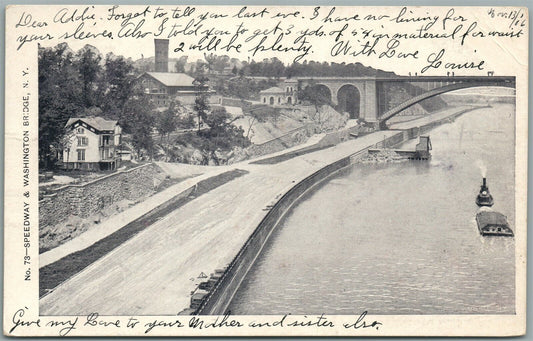 Dear Addie, Forgot to tell you last eve. I have no lining for
your sleeves. Also I told you to get 5 yds. of 54 in material for waist
2 will be plenty.
With Love
Louise
No. 73—SPEEDWAY & WASHINGTON BRIDGE, N. Y.
Give my Love to your Mother and sister also.